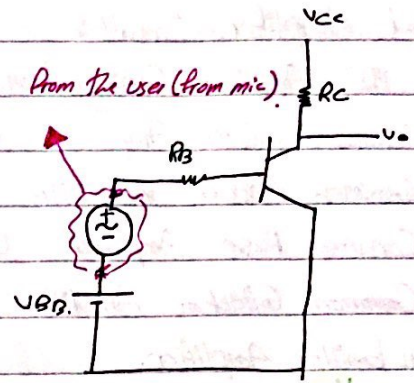 VCC
From the user (from mic).
RC
Vo
RB
+
~
-
VBB.